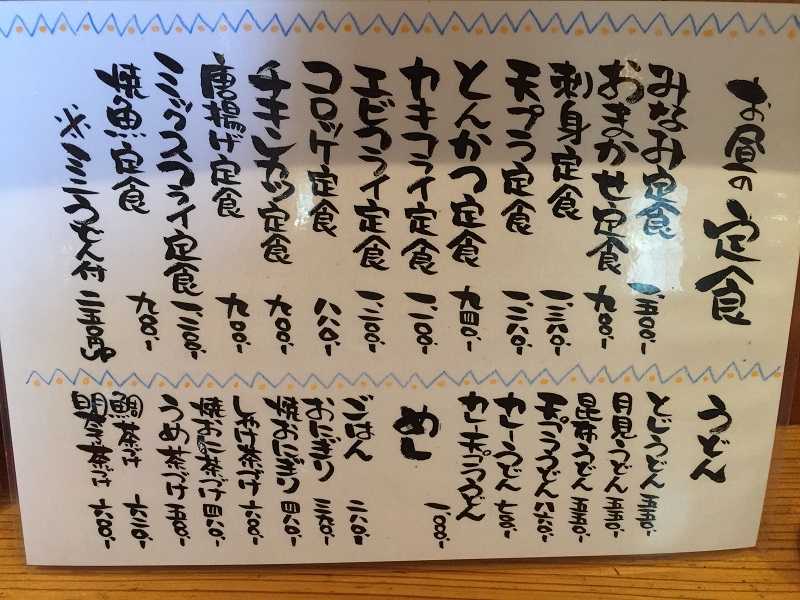 お昼の定食
みなみ定食 一、五〇〇-
おまかせ定食 九八〇-
刺身定食 一、三八〇-
天プラ定食 一、二八〇-
とんかつ定食 九四〇-
カキフライ定食 一、一〇〇-
エビフライ定食 一、二〇〇-
コロッケ定食 八八〇-
チキンカツ定食 九〇〇-
唐揚げ定食 九〇〇-
ミックスフライ定食 一、二〇〇-
焼魚定食 九八〇-
※ミニうどん付 二五〇円
うどん
とじうどん 五五〇-
月見うどん 五五〇-
昆布うどん 五五〇-
天プラうどん 八八〇-
カレーうどん 七八〇-
カレー天プラうどん 一、〇〇〇-
めし
ごはん 二八〇-
おにぎり 三六〇-
焼おにぎり 四八〇-
しゃけ茶づけ 六〇〇-
焼おに茶づけ 四八〇-
うめ茶づけ 五〇〇-
鯛茶づけ 六二〇-
明太茶づけ 六〇〇-